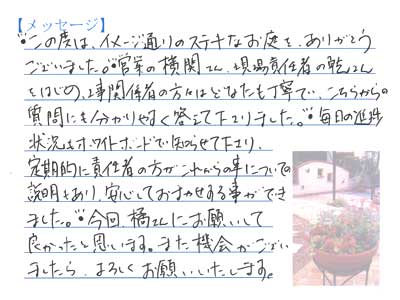 【メッセージ】
"この度は、イメージ通りのステキなお庭を、ありがとう
ございました。"営業の横関さん、現場責任者の乾さん
をはじめ、工事関係者の方々はどなたも丁寧で、こちらからの
質問にも分かりやすく答えて下さりました。"毎日の進捗
状況もホワイトボードで知らせて下さり、
定期的に責任者の方がこれからの事についての
説明もあり、安心しておまかせする事ができ
ました。"今回、橘さんにお願いして
良かったと思います。また機会がござい
ましたら、よろしくお願いいたします。